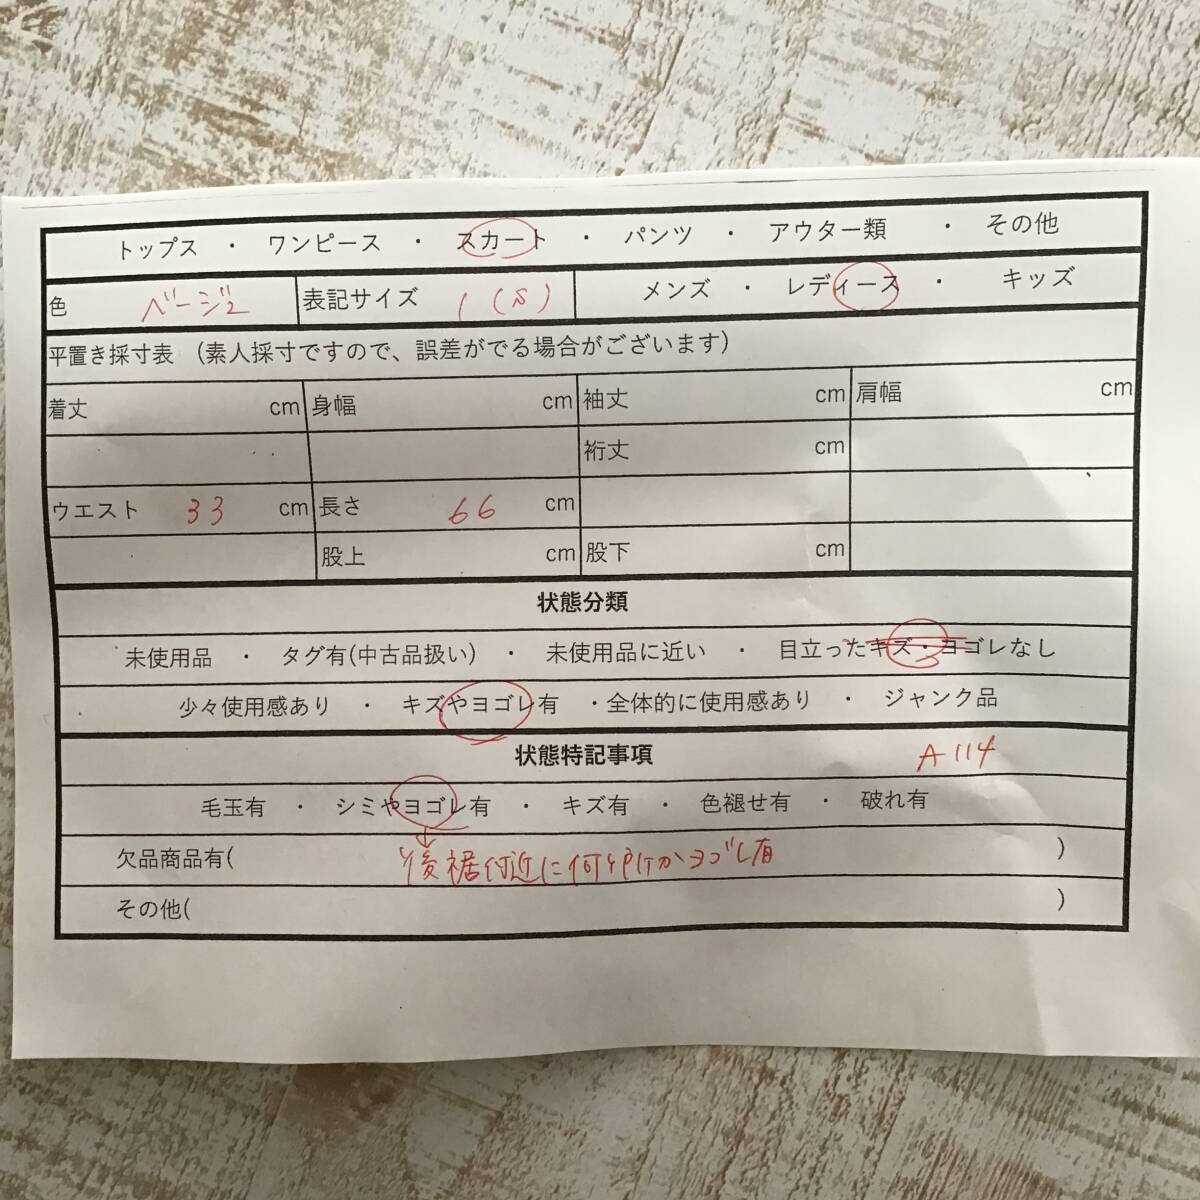 トップス ・ ワンピース ・ スカート ・ パンツ ・ アウター類 ・ その他
色 ベージュ 表記サイズ 1(S) メンズ ・ レディース ・ キッズ
平置き採寸表 (素人採寸ですので、誤差がでる場合がございます)
着丈 cm 身幅 cm 袖丈 cm 肩幅 cm
裄丈 cm
ウエスト 33 cm 長さ 66 cm
股上 cm 股下 cm
状態分類
未使用品 ・ タグ有(中古品扱い) ・ 未使用品に近い ・ 目立ったキズ・ヨゴレなし
少々使用感あり ・ キズやヨゴレ有 ・全体的に使用感あり ・ ジャンク品
状態特記事項 A114
毛玉有 ・ シミやヨゴレ有 ・ キズ有 ・ 色褪せ有 ・ 破れ有
欠品商品有( 後裾付近に何ヶ所かヨゴレ有 )
その他( )